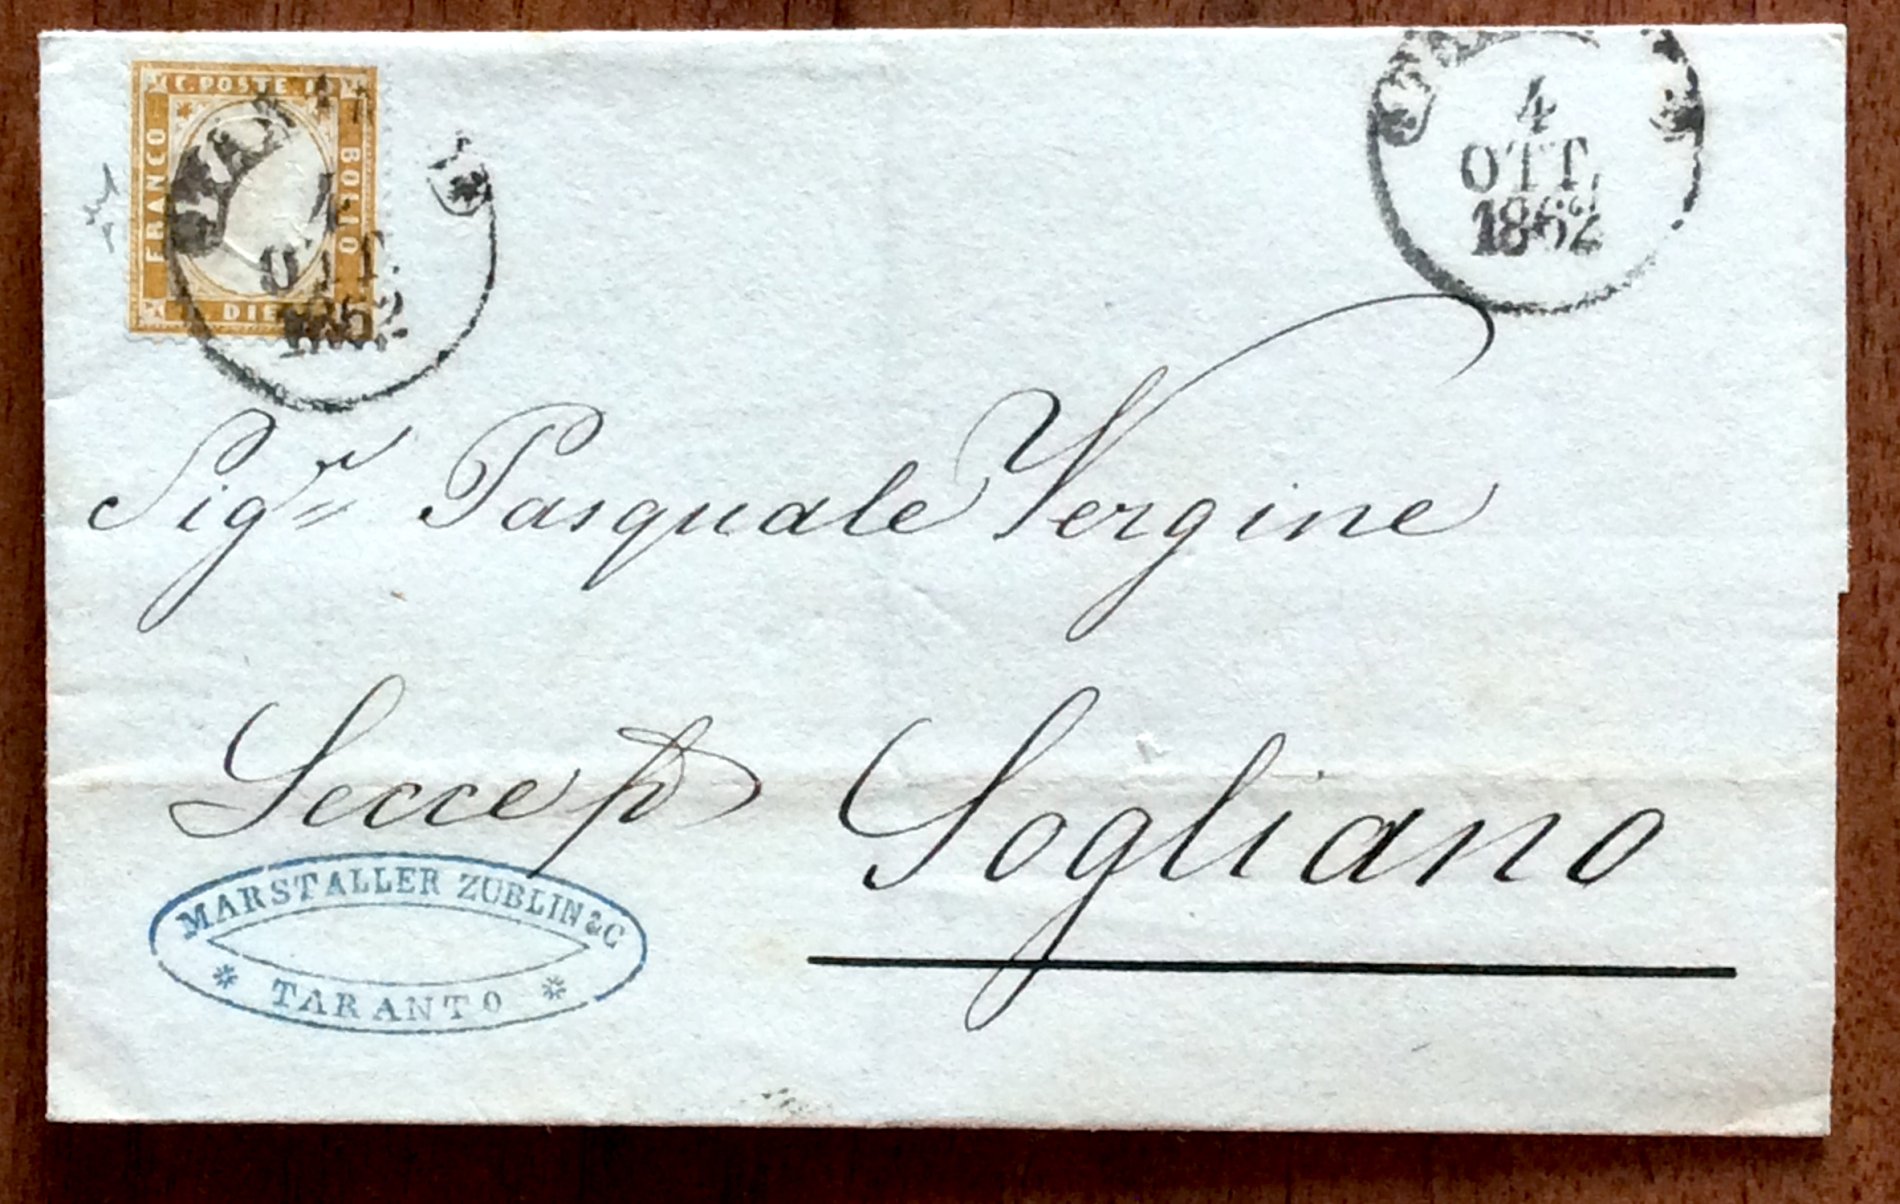 C. POSTE
FRANCO
BOLLO
4
OTT.
1862
4
OTT.
1862
Sigr Pasquale Vergine
Lecce p
Sogliano
MARSTALLER ZUBLIN & C
* TARANTO *